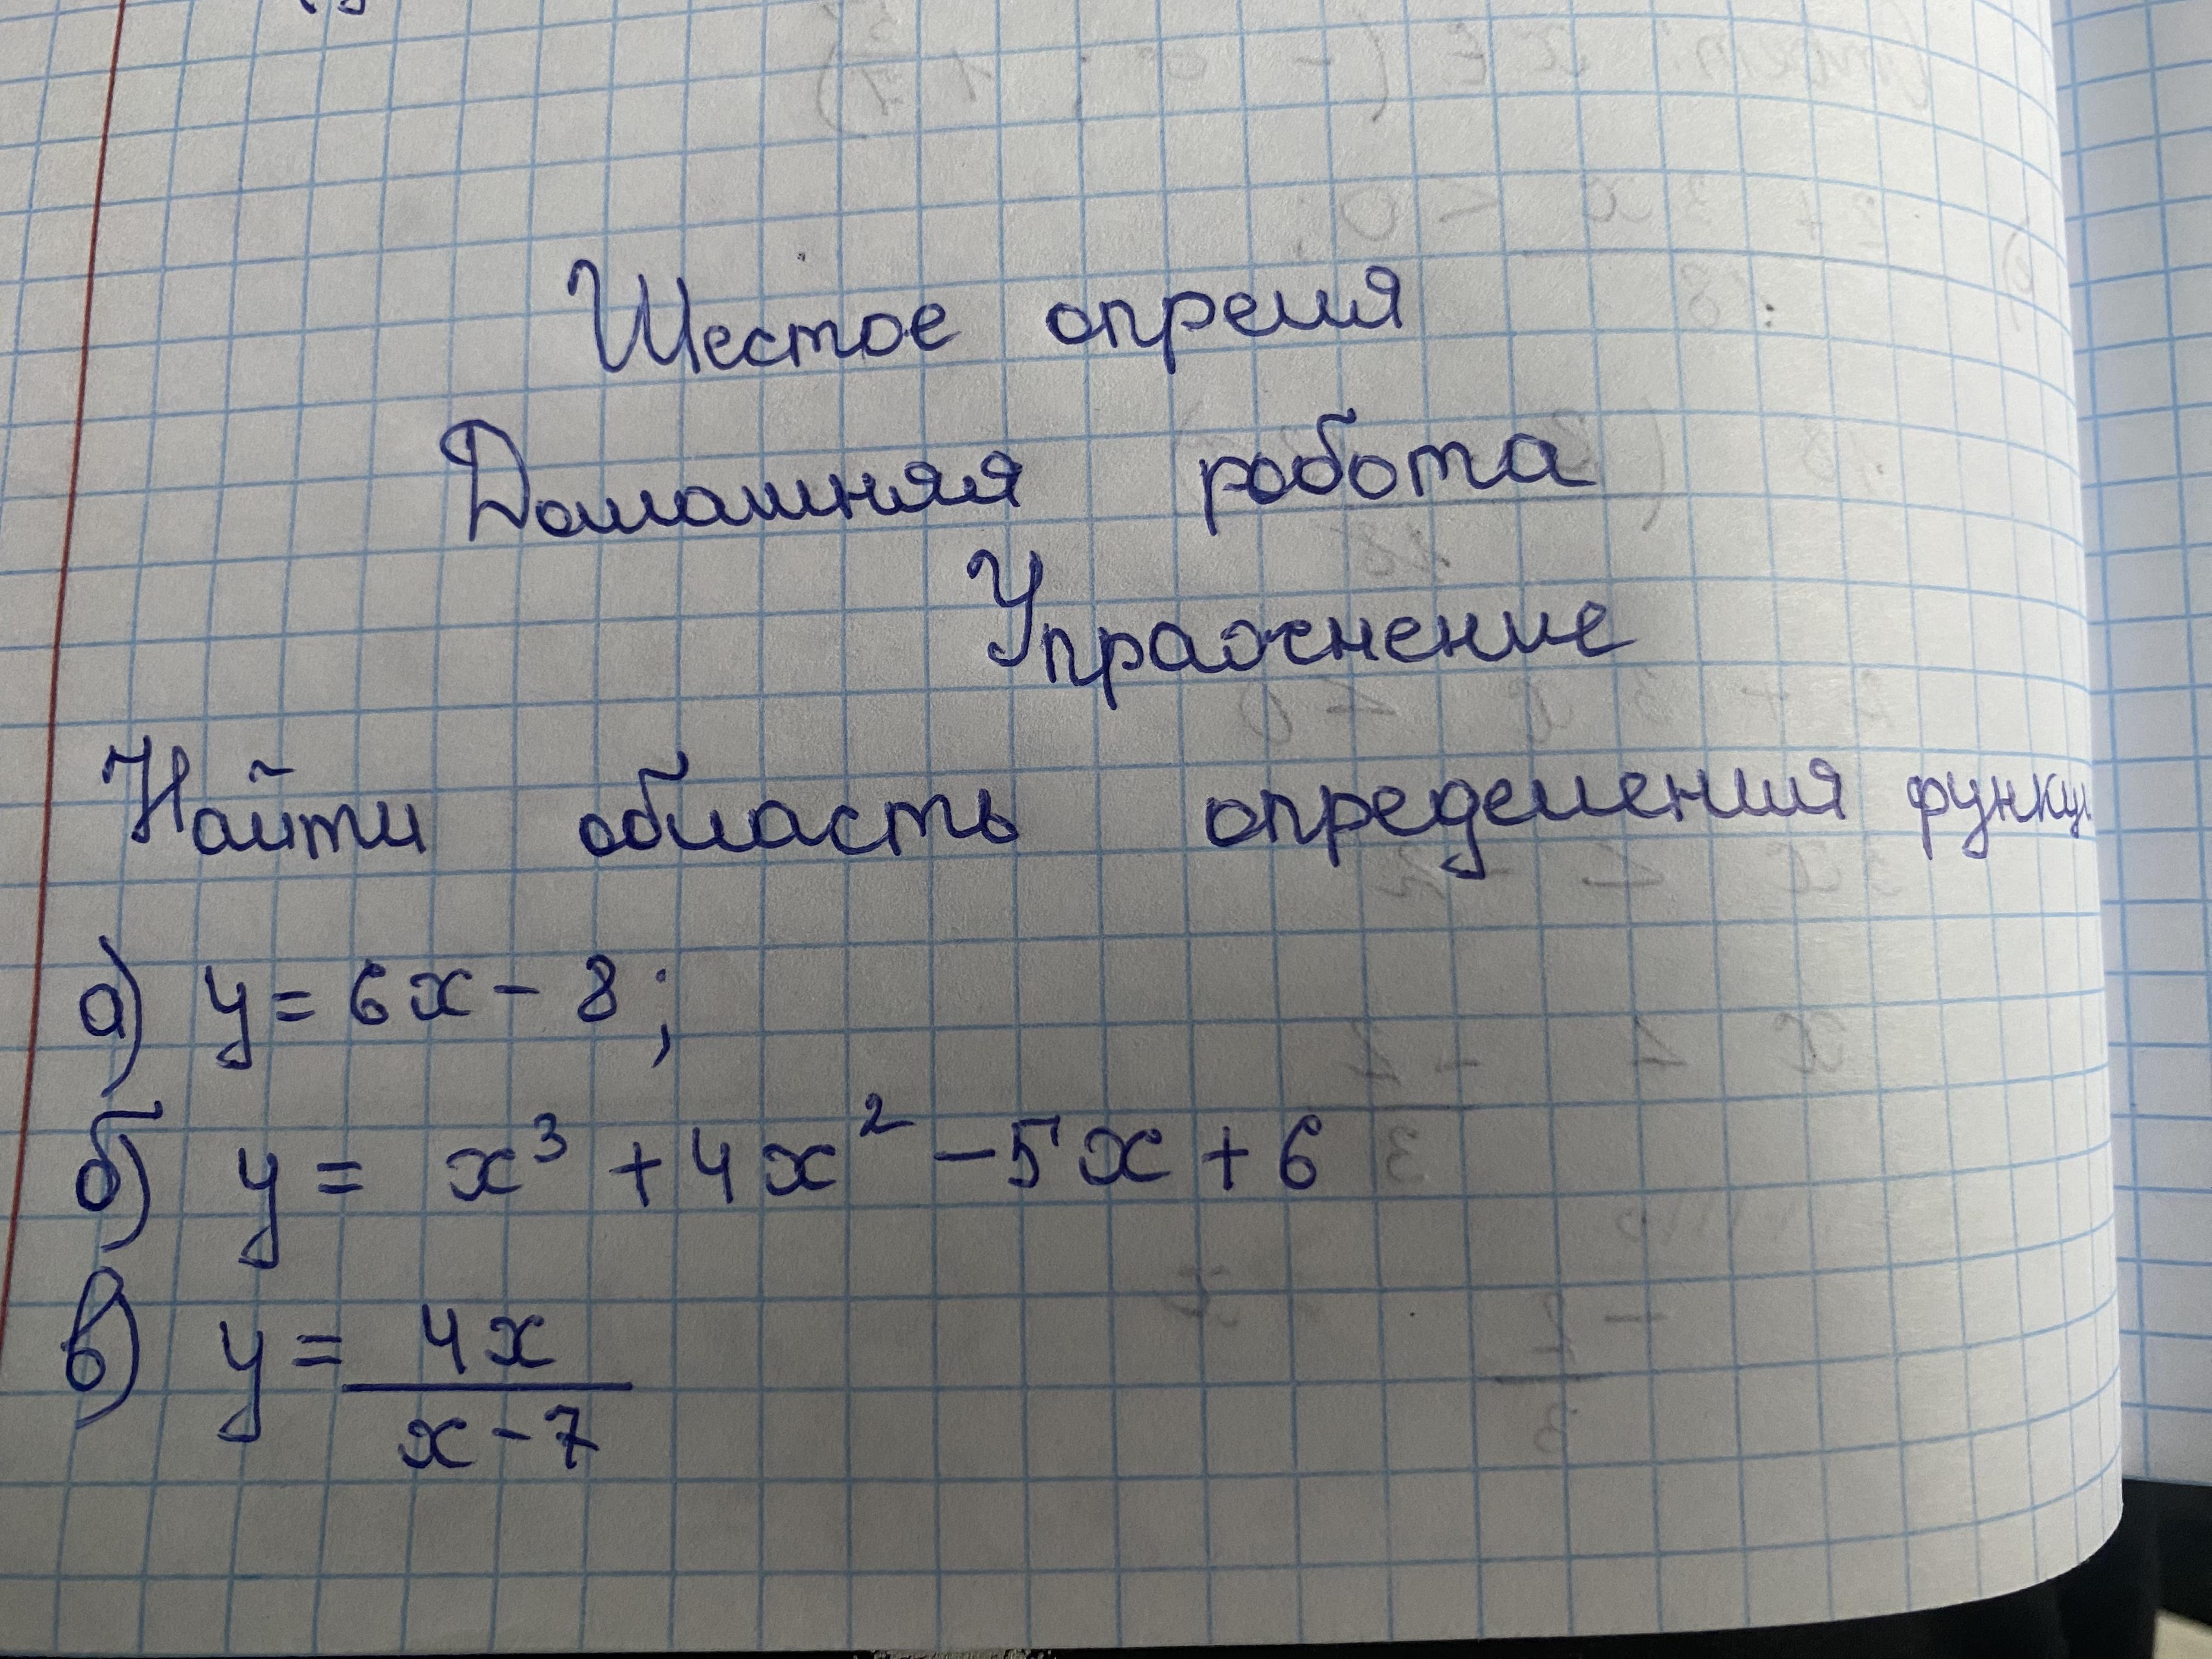 Шестое опреля
Домашняя робота
Упражнение
Найти область определения функци
а) y = 6x - 8;
б) y = x³ + 4x² - 5x + 6
в) y = 4x / x - 7